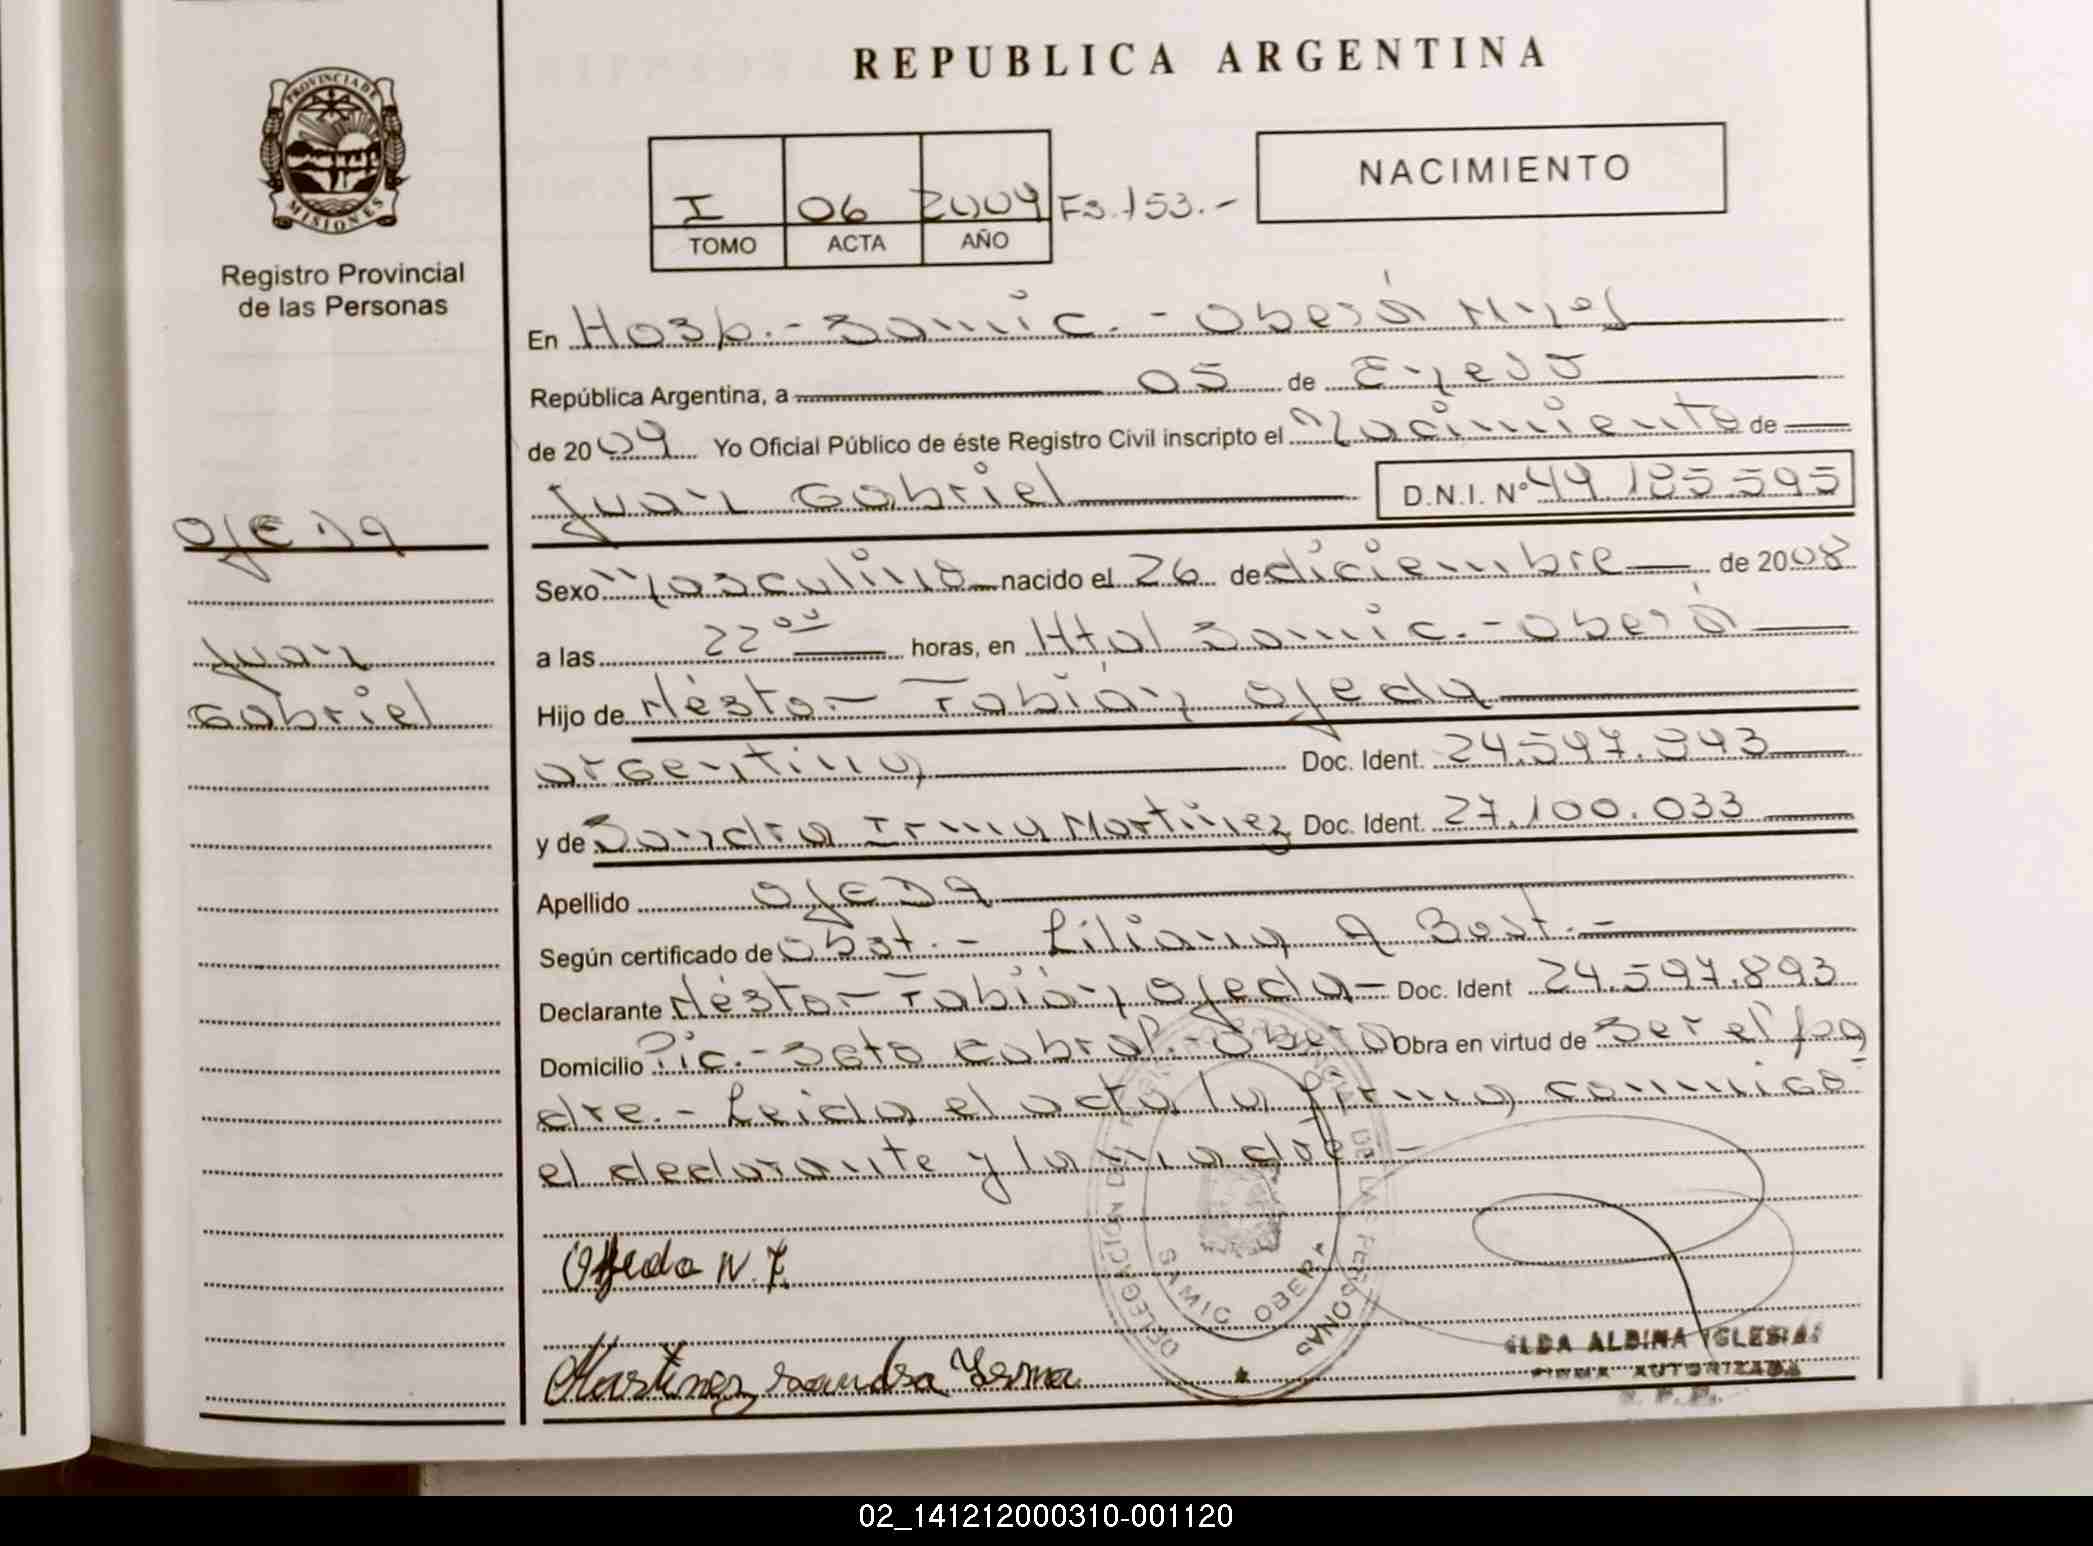 REPUBLICA ARGENTINA
PROVINCIA DE MISIONES
Registro Provincial
de las Personas
NACIMIENTO
I 06 2009 Fs. 153.-
TOMO ACTA AÑO
En Hosp.- Samic.- Oberá Mnes
República Argentina, a 05 de Enero
de 2009 Yo Oficial Público de éste Registro Civil inscripto el Nacimiento de
Juan Gabriel D.N.I. Nº 49.185.595
OJEDA
Juan
Gabriel
Sexo Masculino nacido el 26 de diciembre de 2008
a las 22 00 horas, en Htal Samic.- Oberá
Hijo de Néstor Fabián Ojeda
argentino Doc. Ident. 24.597.893
y de Sandra Irma Martinez Doc. Ident. 27.100.033
Apellido OJEDA
Según certificado de Obst.- Liliana A
Declarante Néstor Fabián Ojeda Doc. Ident 24.597.893
Domicilio Pic.- Sgto Cabral.- Oberá Obra en virtud de ser el pa
dre.- Leida el acta la firma conmigo
el declarante y la madre.-
Ojeda N. F.
Martinez Sandra Irma
DELEGACION DEL REGISTRO PROVINCIAL DE LAS PERSONAS
SAMIC OBERA
ALBINA IGLESIAS
FIRMA AUTORIZADA
R. P. P.
02_141212000310-001120